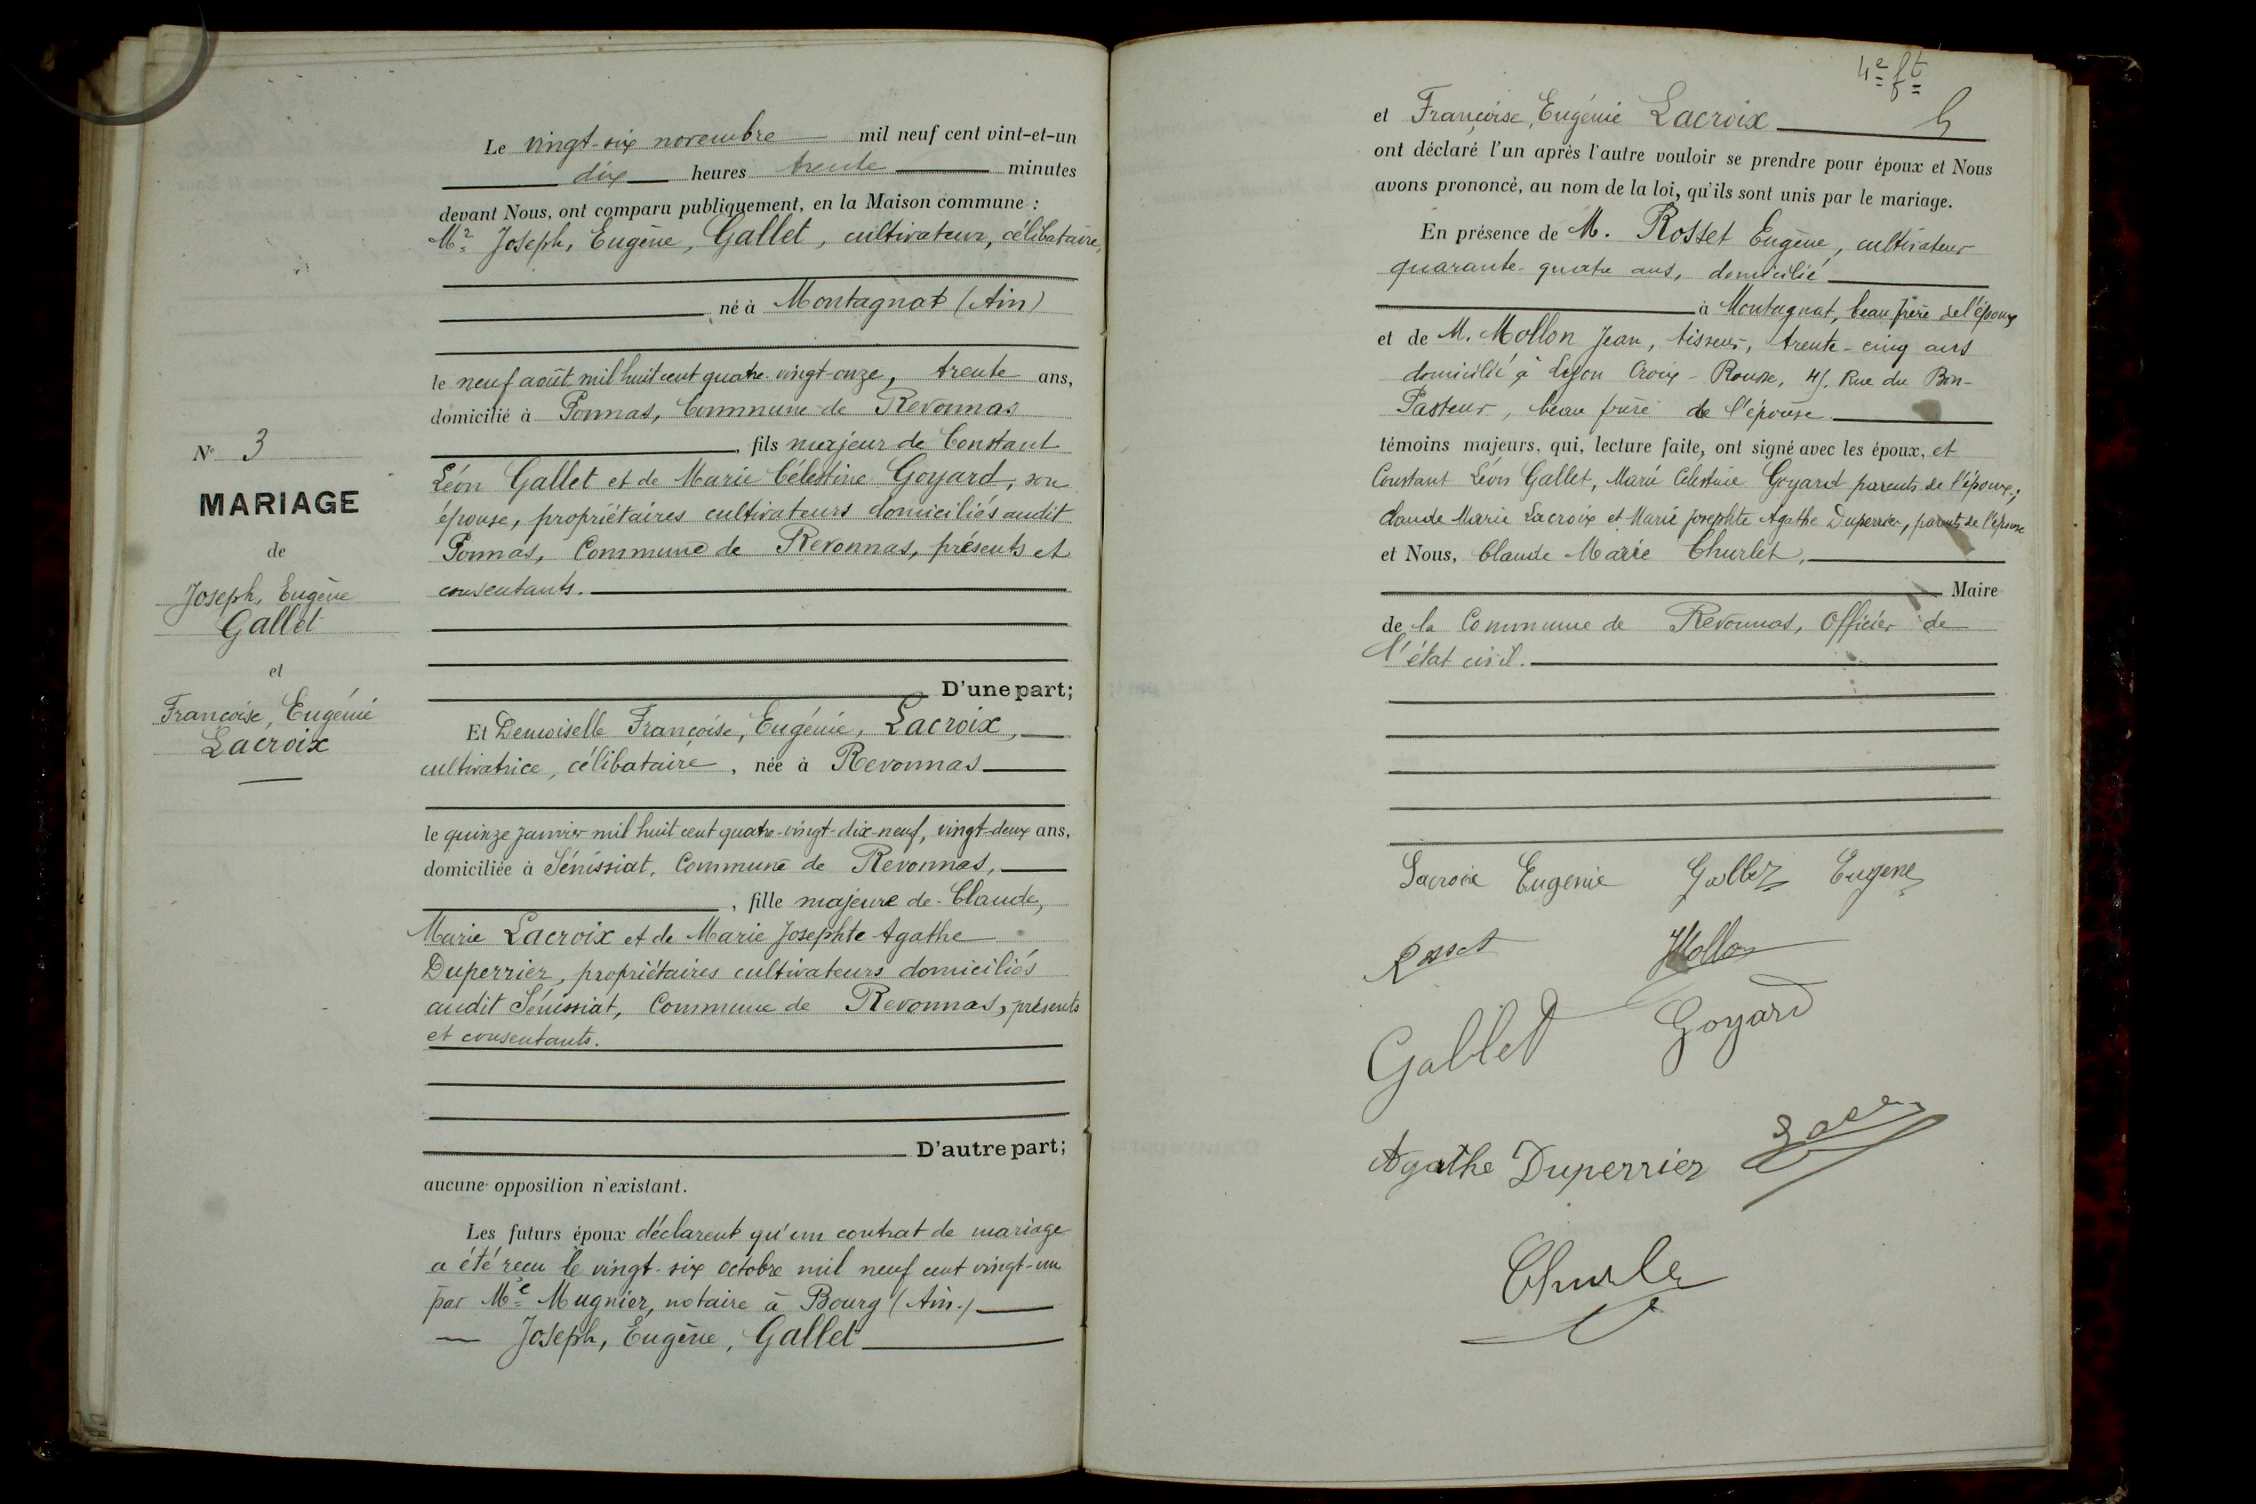 Le vingt-six novembre mil neuf cent vint-et-un
dix heures trente minutes
devant Nous, ont comparu publiquement, en la Maison commune :
Mr Joseph, Eugène, Gallet, cultivateur, célibataire,
né à Montagnat (Ain)
le neuf août mil huit cent quatre-vingt-onze, trente ans,
domicilié à Ponnas, Commune de Revonnas
, fils majeur de Constant
Léon Gallet et de Marie Célestine Goyard, son
épouse, propriétaires cultivateurs domiciliés audit
Ponnas, Commune de Revonnas, présents et
consentants.
D'une part;
N° 3
MARIAGE
de
Joseph, Eugène
Gallet
et
Françoise, Eugénie
Lacroix
Et Demoiselle Françoise, Eugénie, Lacroix,
cultivatrice, célibataire, née à Revonnas
le quinze janvier mil huit cent quatre-vingt-dix-neuf, vingt-deux ans,
domiciliée à Sénissiat, Commune de Revonnas,
, fille majeure de Claude,
Marie Lacroix et de Marie Josephte Agathe
Duperrier, propriétaires cultivateurs domiciliés
audit Sénissiat, Commune de Revonnas, présents
et consentants.
D'autre part;
aucune opposition n'existant.
Les futurs époux déclarent qu'un contrat de mariage
a été reçu le vingt-six octobre mil neuf cent vingt-un
par Me Mugnier, notaire à Bourg (Ain.)
Joseph, Eugène, Gallet
4e ft
et Françoise, Eugénie Lacroix
ont déclaré l'un après l'autre vouloir se prendre pour époux et Nous
avons prononcé, au nom de la loi, qu'ils sont unis par le mariage.
En présence de M. Rosset Eugène, cultivateur
quarante-quatre ans, domicilié
à Montagnat, beau frère de l'époux
et de M. Mollon Jean, tisseur, trente-cinq ans
domicilié à Lyon Croix-Rousse, Rue du Bon-
Pasteur, beau frère de l'épouse.
témoins majeurs, qui, lecture faite, ont signé avec les époux, et
Constant Léon Gallet, Marie Célestine Goyard parents de l'époux;
Claude Marie Lacroix et Marie Josephte Agathe Duperrier, parents de l'épouse
et Nous, Claude Marie Churlet,
Maire
de la Commune de Revonnas, Officier de
l'état civil.
Lacroix Eugenie Gallet Eugene
Rosset Mollon
Gallet Goyard
Agathe Duperrier
Churlet